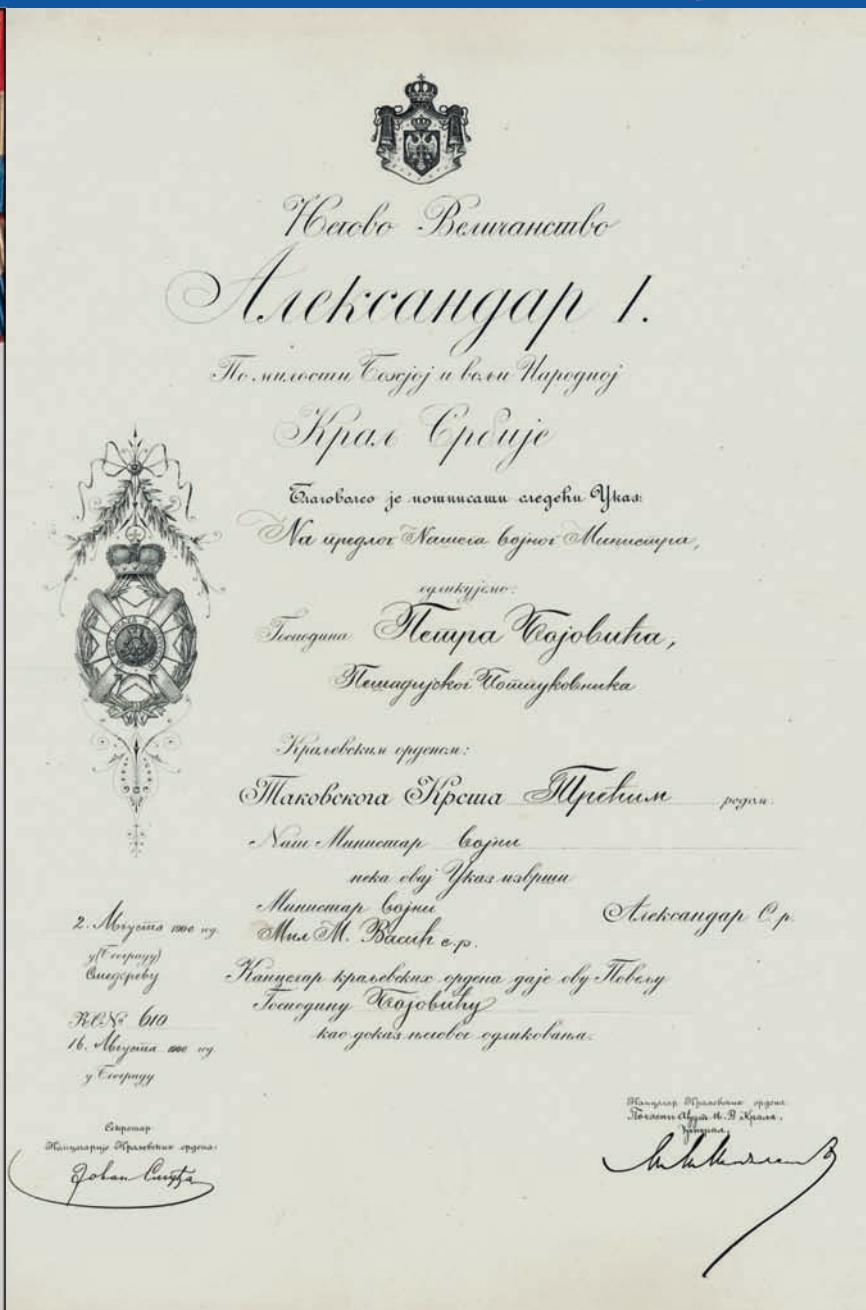 Његово Величанство
Александар I.
По милости Божјој и вољи Народној
Краљ Србије
Благоволео је потписати следећи Указ:
На предлог Нашега Војног Министра,
одликујемо:
Господина Петра Бојовића,
Пешадијског Потпуковника
Краљевским орденом:
Таковскога Крста Трећим редом.
Наш Министар Војни
нека овај Указ изврши
2. Августа 1900 год.
у (Београду)
Смедереву
Министар Војни
Мил. М. Васић с.р.
Александар С. р.
Канцелар краљевских ордена даје ову Повељу
Господину Бојовићу
као доказ његовог одликовања.
К.О.№ 610
16. Августа 1900 год.
у Београду
Секретар
Канцеларије Краљевских ордена:
Канцелар Краљевских ордена
Почасни Ађут. Њ. В. Краља,